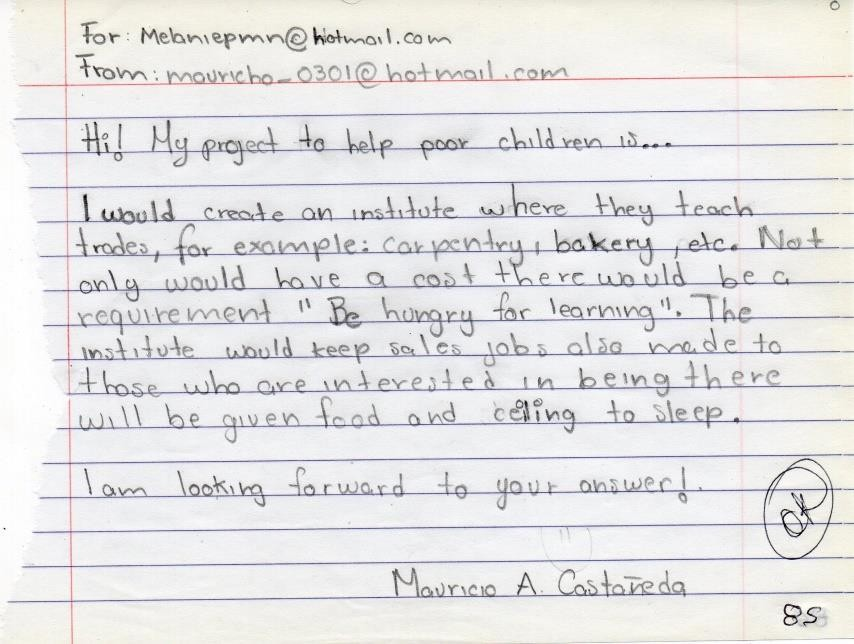 For: Melaniepmn@hotmail.com
From: mauricho_0301@hotmail.com
Hi! My project to help poor children is...
I would create an institute where they teach
trades, for example: carpentry, bakery, etc. Not
only would have a cost there would be a
requirement "Be hungry for learning". The
institute would keep sales jobs also made to
those who are interested in being there
will be given food and ceiling to sleep.
I am looking forward to your answer!
OK
Mauricio A. Castañeda
58